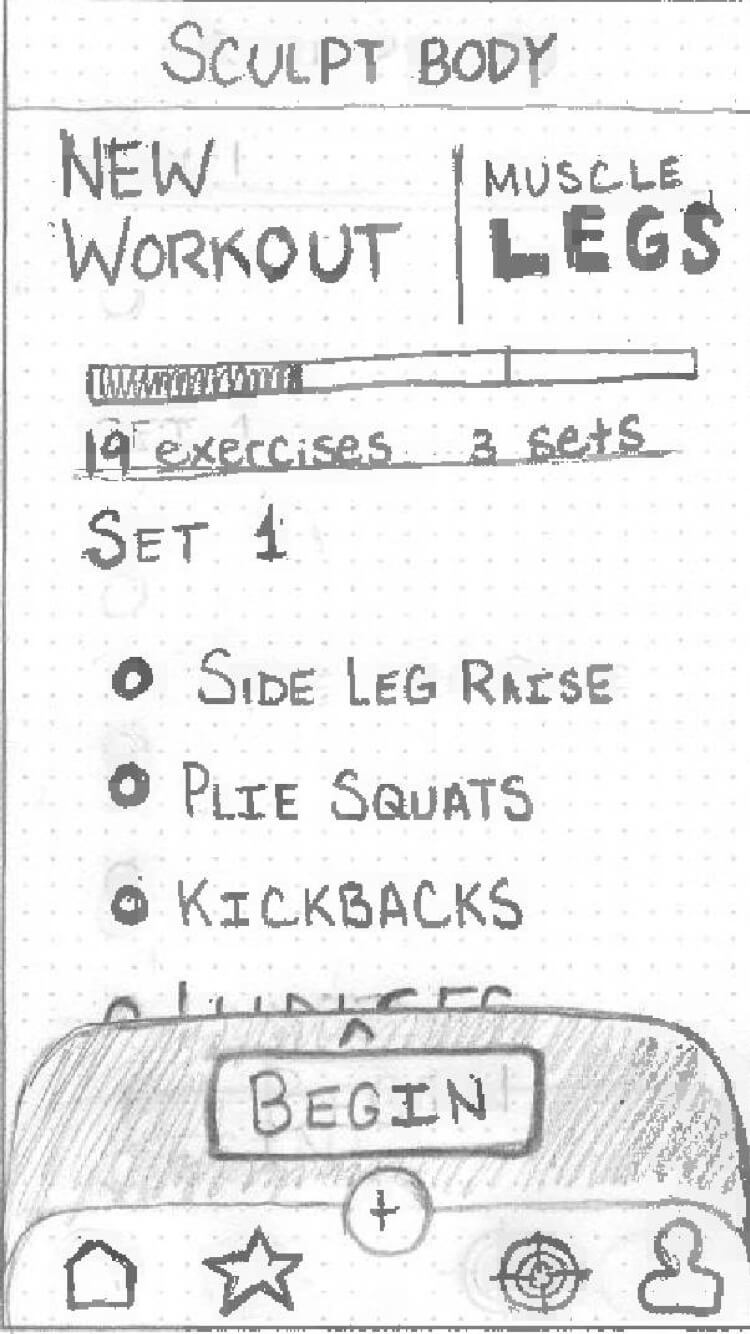 SCULPT BODY
NEW
WORKOUT
MUSCLE
LEGS
19 exercises 3 sets
SET 1
SIDE LEG RAISE
PLIE SQUATS
KICKBACKS
BEGIN
+